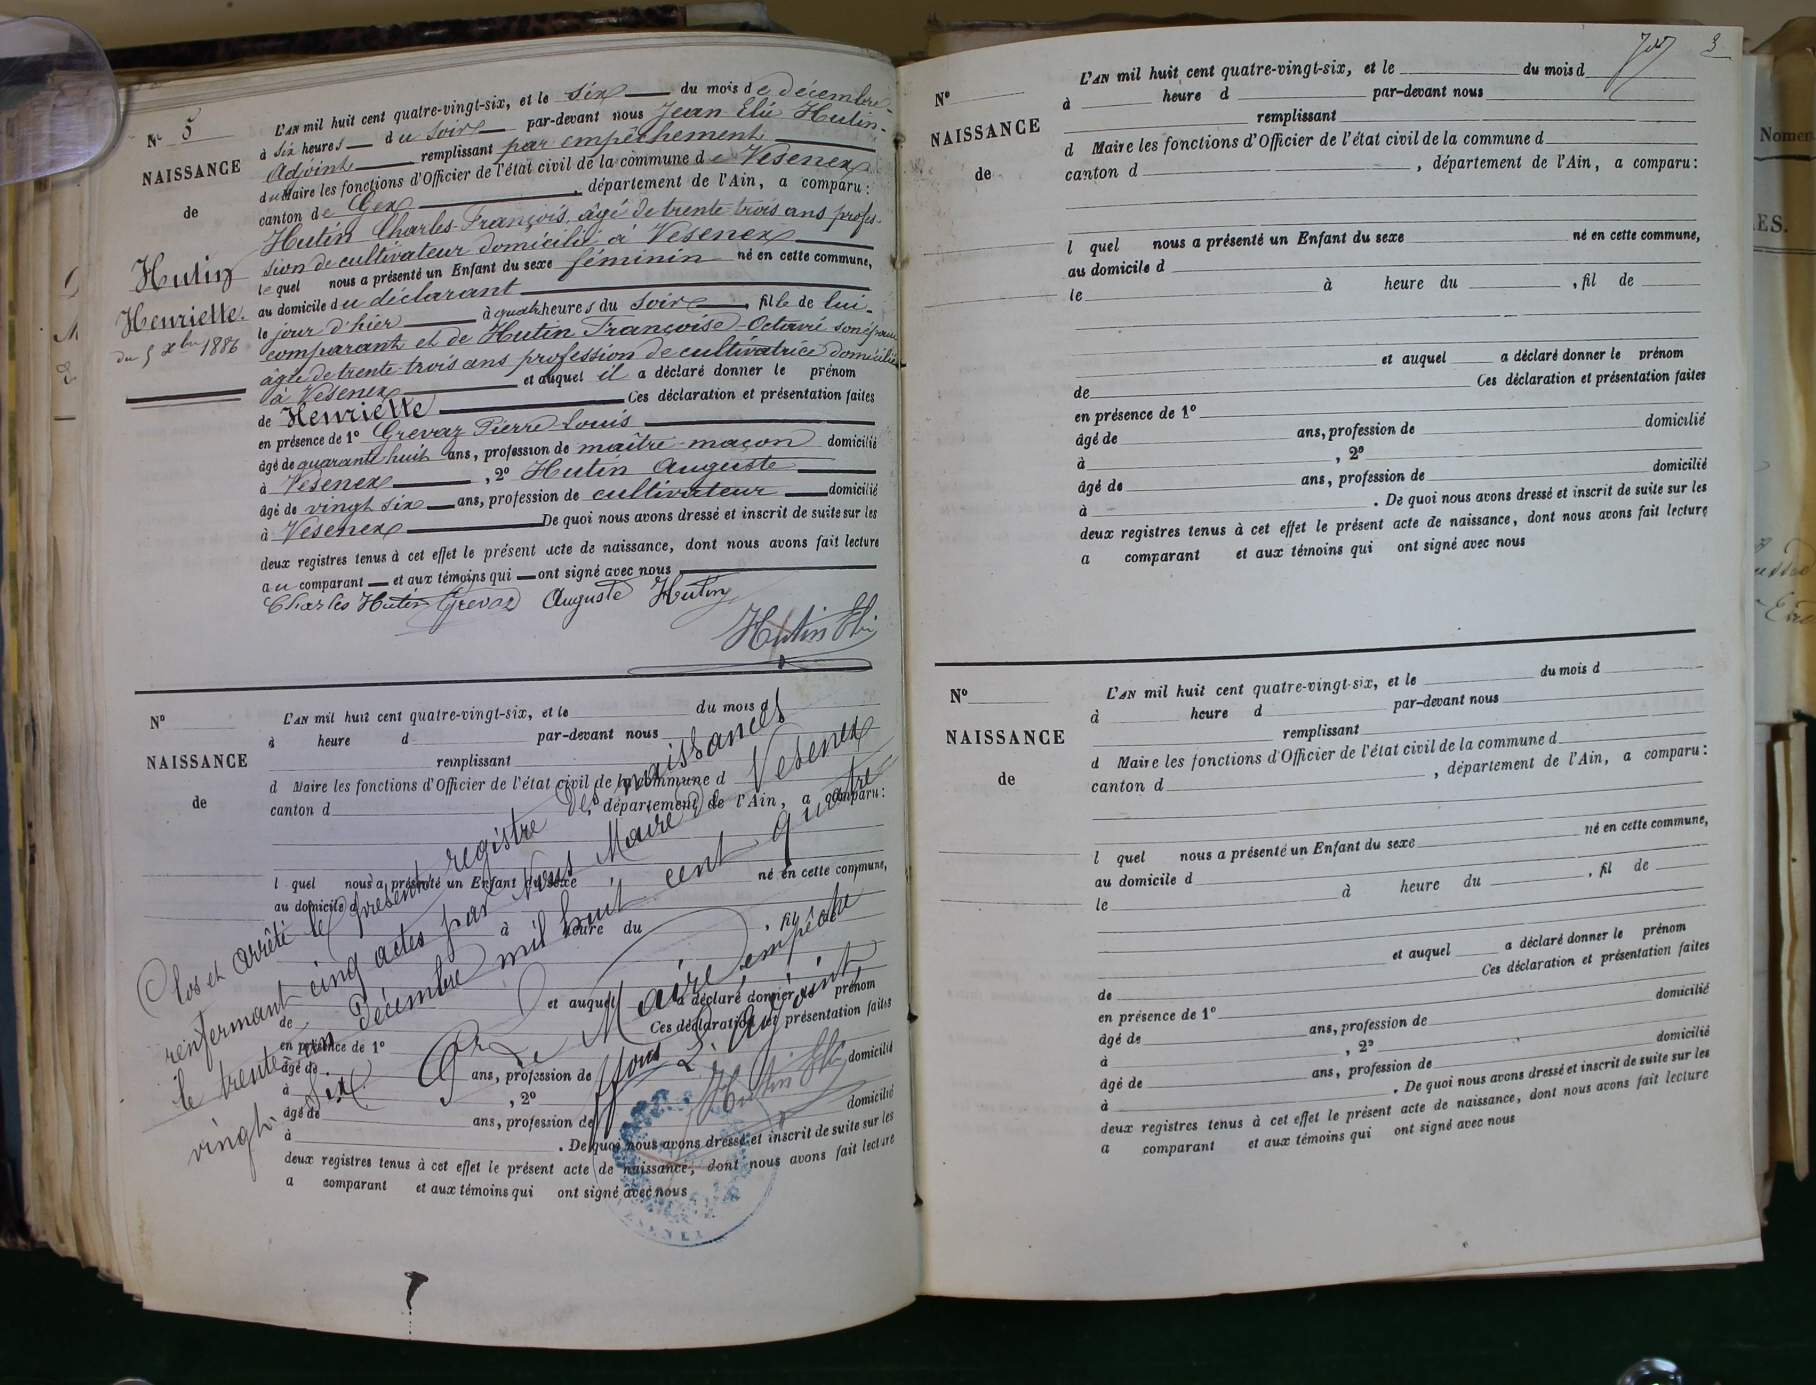 N° 5
NAISSANCE
de
Hutin
Henriette.
du 5 Xbre 1886
L'AN mil huit cent quatre-vingt-six, et le six du mois de décembre
à six heures du soir par-devant nous Jean Elie Hutin
adjoint remplissant par empêchement
du Maire les fonctions d'Officier de l'état civil de la commune de Vesenex
canton de Gex, département de l'Ain, a comparu:
Hutin Charles-François, âgé de trente-trois ans profes-
sion de cultivateur domicilié à Vesenex
lequel nous a présenté un Enfant du sexe féminin né en cette commune,
au domicile du déclarant
le jour d'hier à quatre heures du soir, fille de lui-
comparant et de Hutin Françoise-Octavie son épouse
âgée de trente-trois ans profession de cultivatrice domiciliée
à Vesenex et auquel il a déclaré donner le prénom
de Henriette Ces déclaration et présentation faites
en présence de 1° Grevaz Pierre Louis
âgé de quarante huit ans, profession de maître-maçon domicilié
à Vesenex, 2° Hutin Auguste
âgé de vingt six ans, profession de cultivateur domicilié
à Vesenex De quoi nous avons dressé et inscrit de suite sur les
deux registres tenus à cet effet le présent acte de naissance, dont nous avons fait lecture
au comparant et aux témoins qui ont signé avec nous
Charles Hutin Grevaz Auguste Hutin
Hutin Elie
N°
NAISSANCE
de
L'AN mil huit cent quatre-vingt-six, et le du mois d
à heure d par-devant nous
remplissant
d Maire les fonctions d'Officier de l'état civil de la commune d
canton d , département de l'Ain, a comparu:
l quel nous a présenté un Enfant du sexe né en cette commune,
au domicile d
le à heure du , fil de
et auquel a déclaré donner le prénom
de Ces déclaration et présentation faites
en présence de 1°
âgé de ans, profession de domicilié
à , 2°
âgé de ans, profession de domicilié
à . De quoi nous avons dressé et inscrit de suite sur les
deux registres tenus à cet effet le présent acte de naissance, dont nous avons fait lecture
a comparant et aux témoins qui ont signé avec nous
Clos et arrêté le présent registre des naissances
renfermant cinq actes par Nous Maire de Vesenex
le trente-un Décembre mil huit cent quatre-
vingt-six
Maire empêché
L'Adjoint
Hutin Elie
3
N°
NAISSANCE
de
L'AN mil huit cent quatre-vingt-six, et le du mois d
à heure d par-devant nous
remplissant
d Maire les fonctions d'Officier de l'état civil de la commune d
canton d , département de l'Ain, a comparu:
l quel nous a présenté un Enfant du sexe né en cette commune,
au domicile d
le à heure du , fil de
et auquel a déclaré donner le prénom
de Ces déclaration et présentation faites
en présence de 1°
âgé de ans, profession de domicilié
à , 2°
âgé de ans, profession de domicilié
à . De quoi nous avons dressé et inscrit de suite sur les
deux registres tenus à cet effet le présent acte de naissance, dont nous avons fait lecture
a comparant et aux témoins qui ont signé avec nous
N°
NAISSANCE
de
L'AN mil huit cent quatre-vingt-six, et le du mois d
à heure d par-devant nous
remplissant
d Maire les fonctions d'Officier de l'état civil de la commune d
canton d , département de l'Ain, a comparu:
l quel nous a présenté un Enfant du sexe né en cette commune,
au domicile d
le à heure du , fil de
et auquel a déclaré donner le prénom
de Ces déclaration et présentation faites
en présence de 1°
âgé de ans, profession de domicilié
à , 2°
âgé de ans, profession de domicilié
à . De quoi nous avons dressé et inscrit de suite sur les
deux registres tenus à cet effet le présent acte de naissance, dont nous avons fait lecture
a comparant et aux témoins qui ont signé avec nous